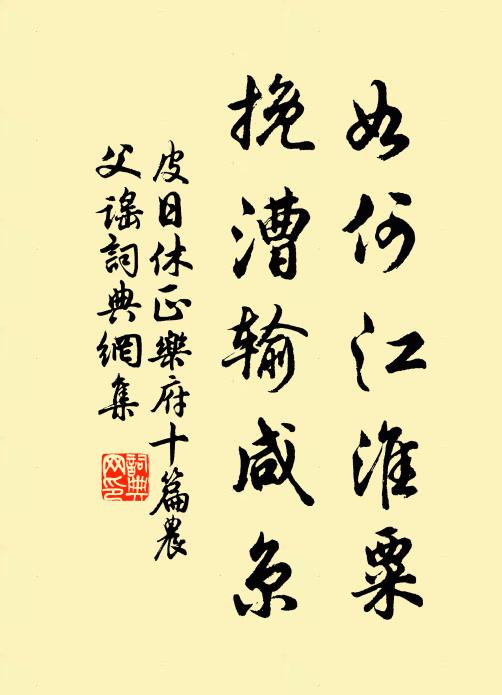 如何江淮粟
挽漕输咸京
皮日休正樂府十篇農
父謠詞典網集
詞典网印